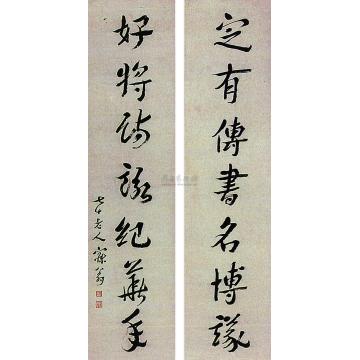 定有傳書名博議
好將詩詠紀華年
七十老人寐翁